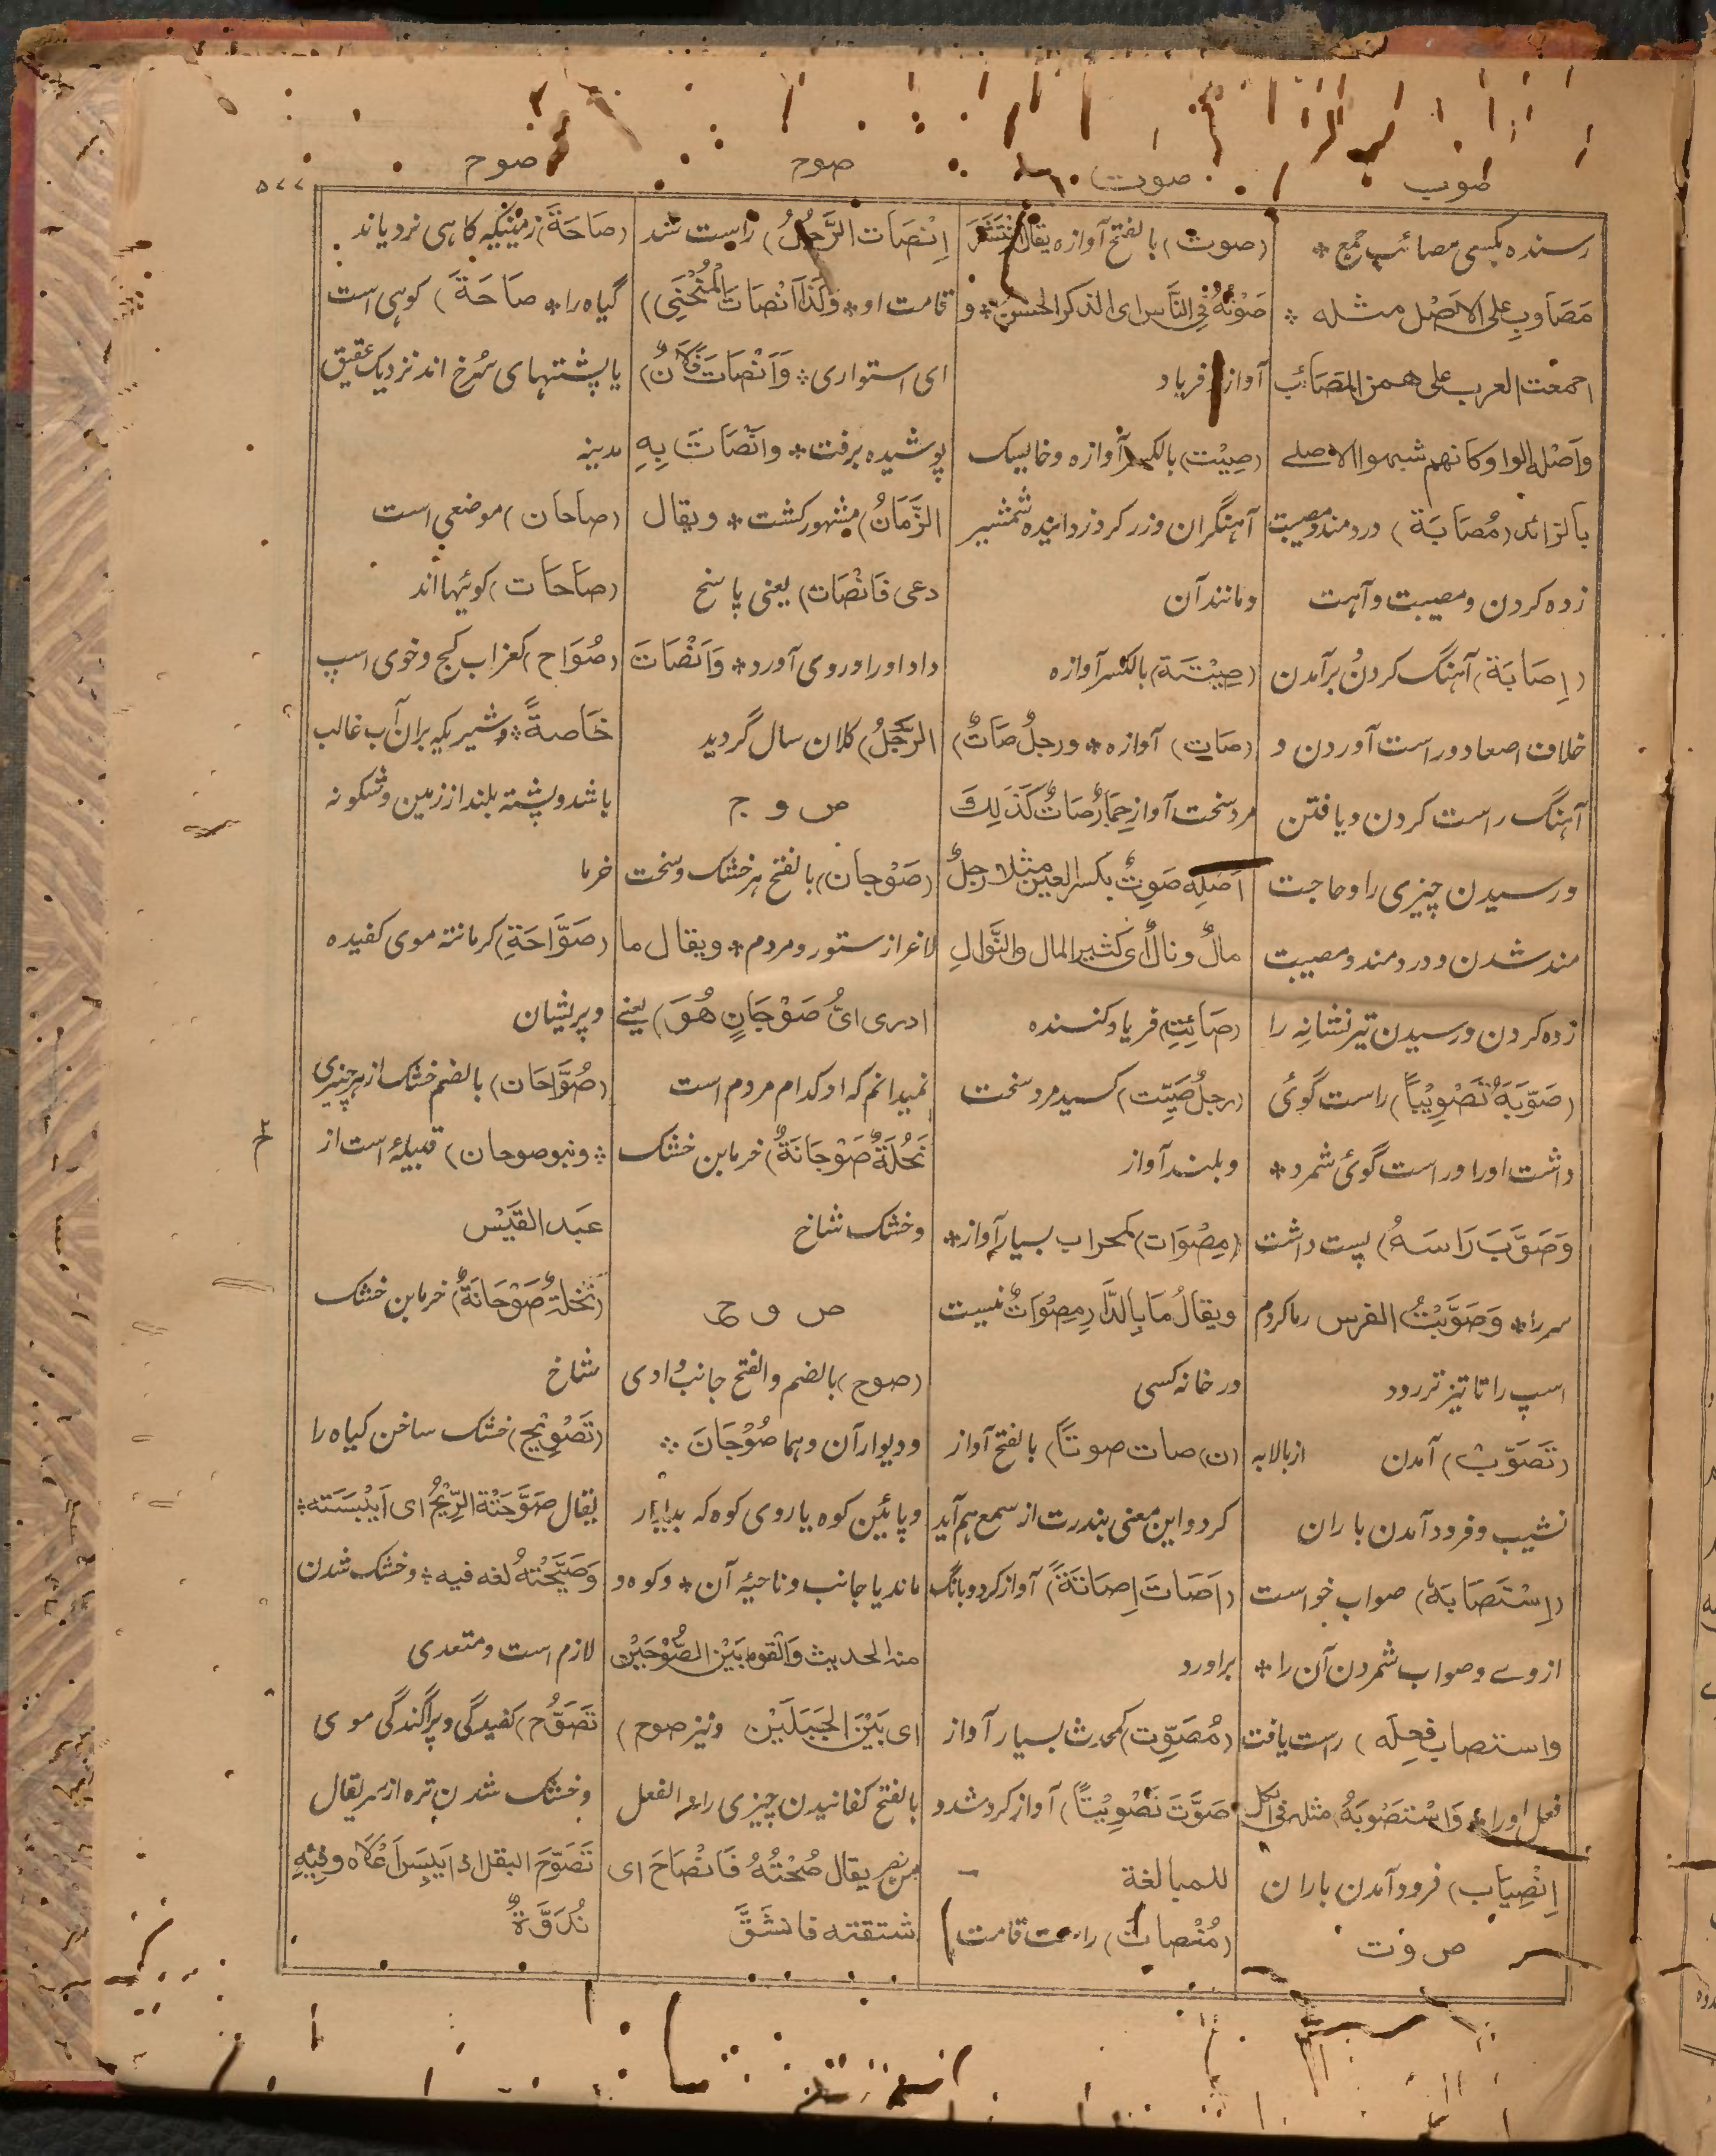 صوب
صوت
صوج
صوح
۵۷۷
رسنده بکسی مصائب جمع *
مَصَاوِب علی الاَصْل مثله *
اجمعت العرب علی همز المَصَائب
وَاَصْله الواو کانهم شبهوا الاصلے
بالزائد (مُصَابَة) دردمند و مصیبت
زده کردن و مصیبت و آهت
(اِصَابَة) آهنگ کردن برآمدن
خلاف اصعاد و راست آوردن و
آهنگ راست کردن و یافتن
و رسیدن چیزی را و حاجت
مند شدن و دردمند و مصیبت
زده کردن و رسیدن تیر نشانه را
(صَوَّبَهُ تَصْوِیْبًا) راست گوئ
داشت اورا و راست گوئ شمرد *
وَصَوَّبَ رَاسَهُ) پست داشت
سر را * وَصَوَّبْتُ الفرس رها کردم
اسپ را تا تیز تر رود
(تَصَوُّب) آمدن از بالا به
نشیب و فرود آمدن باران
(اِسْتَصَابَة) صواب خواست
از وے و صواب شمردن آن را *
واستصاب فِعلَه) راست یافت
فعل اورا * وَاسْتَصْوَبَهُ مثله فی الکل
اِنْصِیَاب) فرود آمدن باران
ص و ت
(صوت) بالفتح آوازه یقال اِنْتَشَرَ
صَوْتُهُ فِی النَّاس ای الذکر الحسن * و
آواز فریاد
(صِیْت) بالکسر آوازه و خایسک
آهنگران و زرگر و زدایندہ شمشیر
و مانند آن
(صِیْتَة) بالکسر آوازه
(صَات) آوازه * ورجلٌ صَاتٌ)
مرد سخت آواز حِمَارٌ صَاتٌ کَذَلِكَ
اَصْلُه صَوِتٌ بکسر العین مثل رجلٌ
مالٌ و نالٌ ای کثیر المال والنَّوالِ
(صَائِت) فریاد کننده
(رجلٌ صَیِّت) کسید مرد سخت
و بلند آواز
(مِصْوَات) کمحراب بسیار آواز *
ویقالُ مَا بِالدَّارِ مِصْوَاتٌ نیست
در خانه کسی
(ن) صات صوتًا) بالفتح آواز
کرد و این معنی بندرت از سمع هم آید
(اَصَاتَ اِصَاتَةً) آواز کرد و بانگ
براورد
(مُصَوِّت) کمحدث بسیار آواز
صَوَّتَ تَصْوِیْتًا) آواز کرد شدد
للمبالغة
(مُنْصات) راست قامت
اِنْصَات الرَّجُلُ) راست شد
قامت او * وَکَذَا اَنْصَاتَ الْمُنْحَنِی)
ای استواری * وَاَنْصَاتَ فُلَانٌ)
پوشیده برفت * وانْصَاتَ بِهِ
الزَّمَانُ) مشهور گشت * ویقال
دعی فَانْصَاتَ) یعنی پاسخ
داد اورا و روی آورد * وَاَنْصَاتَ
الرَّجُلُ) کلان سال گردید
ص و ج
(صَوْجان) بالفتح هر خشک و سخت
لاغر از ستور و مردم * ویقال ما
ادری ایُّ صَوْجَانٍ هُوَ) یعنے
نمیدانم که او کدام مردم است
نَخْلَةٌ صَوْجَانَةٌ) خرمابن خشک
و خشک شاخ
ص و ح
(صوح) بالضم والفتح جانب وادی
و دیوار آن و هما صُوْحَانَ *
و پائین کوه یا روی کوه که بدیوار
ماند یا جانب و ناحیهٔ آن * و کوه و
منه الحدیث وَالقوم بَیْن الصُّوْحَیْن
ای بَیْنَ الجَبَلَیْن و نیز صوح)
بالفتح کفانیدن چیزی را و الفعل
من نصر یقال صُحْتُهُ فَانْصَاحَ ای
شققته فانشَقَّ
(صَاحَة) زمینیکه گاهی نرویاند
گیاه را * صَاحَة) کوهی است
یا پشتهای سُرخ اند نزدیک عقیق
مدینه
(صاحان) موضعی است
(صَاحَات) کوئیها اند
(صُوَاح) کغراب گچ و خوی اسپ
خَاصةً * و شیریکه بران آب غالب
باشد و پشته بلند از زمین و شگوفه
خرما
(صَوَّاحَة) کرمانته موی کفیده
و پریشان
(صُوَّاحَان) بالضم خشک از هر چیزی
* و بنو صوحان) قبیلهٔ است از
عَبد القَیْس
(نخلة صَوْحَانَةٌ) خرمابن خشک
شاخ
(تَصْوِیْح) خشک ساختن گیاه را
یقال صَوَّحَتْهُ الرِّیْحُ ای اَیْبَسَته *
وَصَیَّحَتْهُ لغه فیه * و خشک شدن
لازم است و متعدی
تَصَوُّح) کفیدگی و پراگندگی موی
و خشک شدن تره از سر یقال
تَصَوَّحَ البقل اذا یَبِسَ اَعْلَاه وفِیْهِ
نُدُوَّةٌ